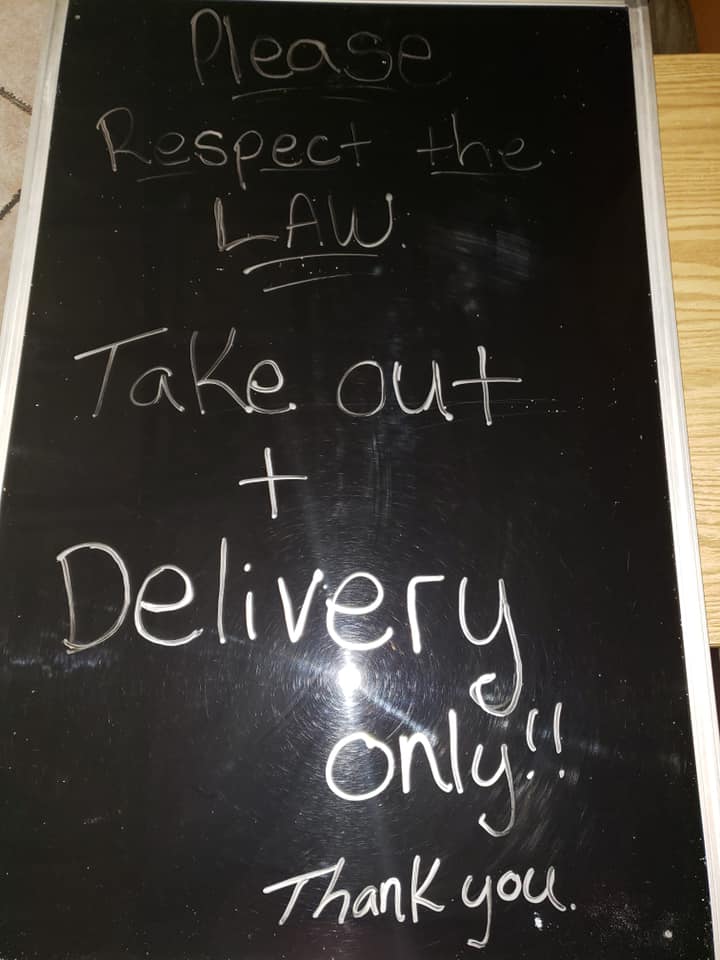 Please
Respect the
LAW.
Take out
+
Delivery
only!!
Thank you.